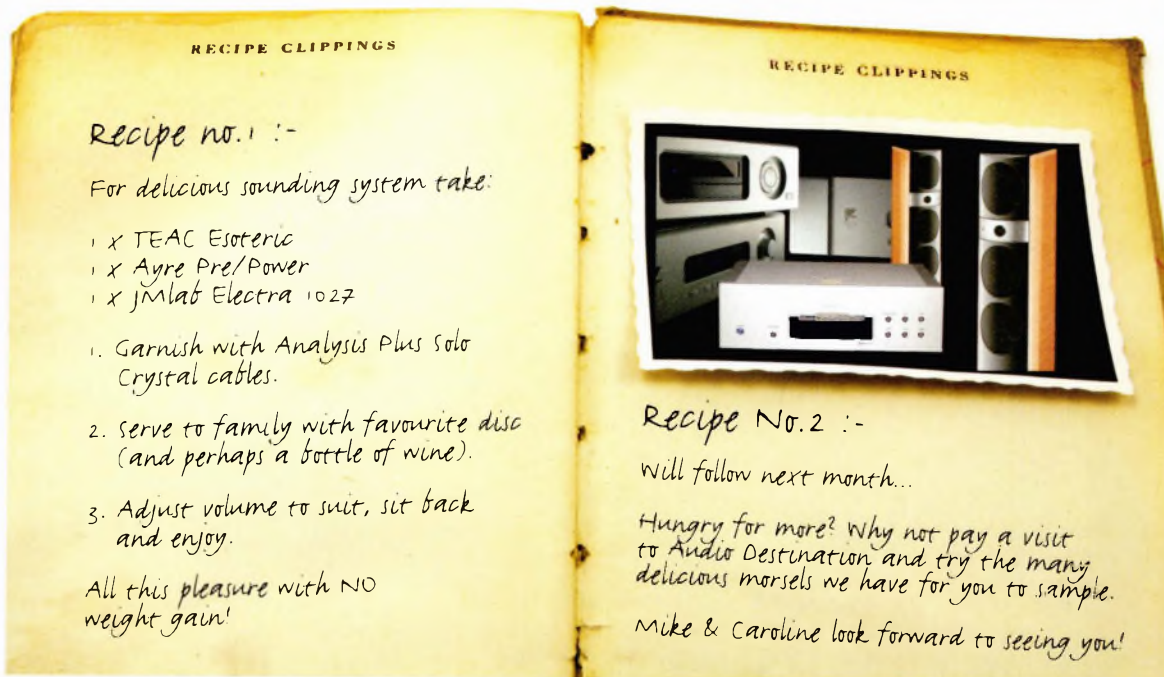 RECIPE CLIPPINGS
Recipe no.1 :-
For delicious sounding system take:
1 x TEAC Esoteric
1 x Ayre Pre/Power
1 x JMlab Electra 1027
1. Garnish with Analysis Plus Solo
Crystal cables.
2. Serve to family with favourite disc
(and perhaps a bottle of wine).
3. Adjust volume to suit, sit back
and enjoy.
All this pleasure with NO
weight gain!
RECIPE CLIPPINGS
Recipe No.2 :-
Will follow next month...
Hungry for more? Why not pay a visit
to Audio Destination and try the many
delicious morsels we have for you to sample.
Mike & Caroline look forward to seeing you!